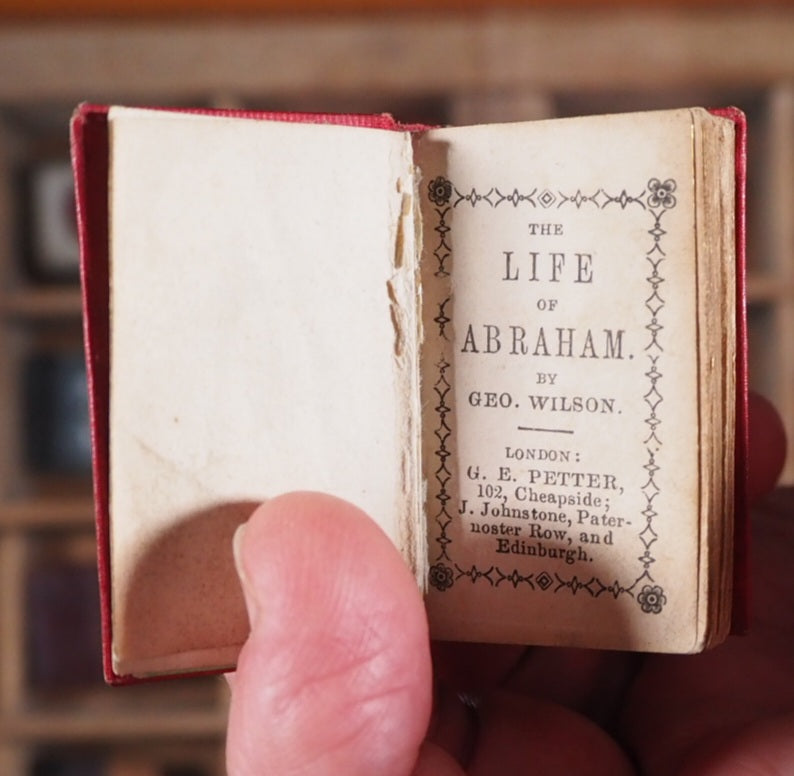 THE
LIFE
OF
ABRAHAM.
BY
GEO. WILSON.
LONDON:
G. E. PETTER,
102, Cheapside;
J. Johnstone, Pater-
noster Row, and
Edinburgh.